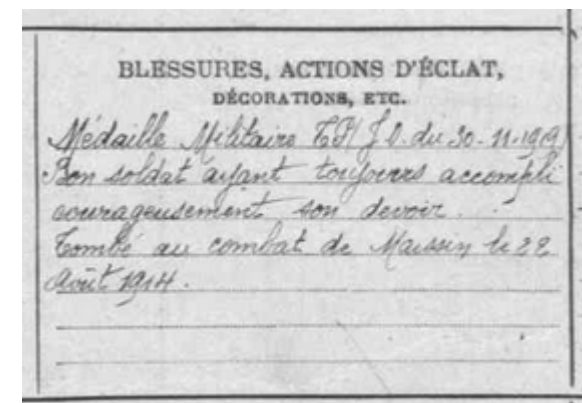 BLESSURES, ACTIONS D'ÉCLAT,
DÉCORATIONS, ETC.
Médaille Militaire T.P. (J.O. du 30-11-1919)
Bon soldat ayant toujours accompli
courageusement son devoir.
Tombé au combat de Maissin le 22
Août 1914.